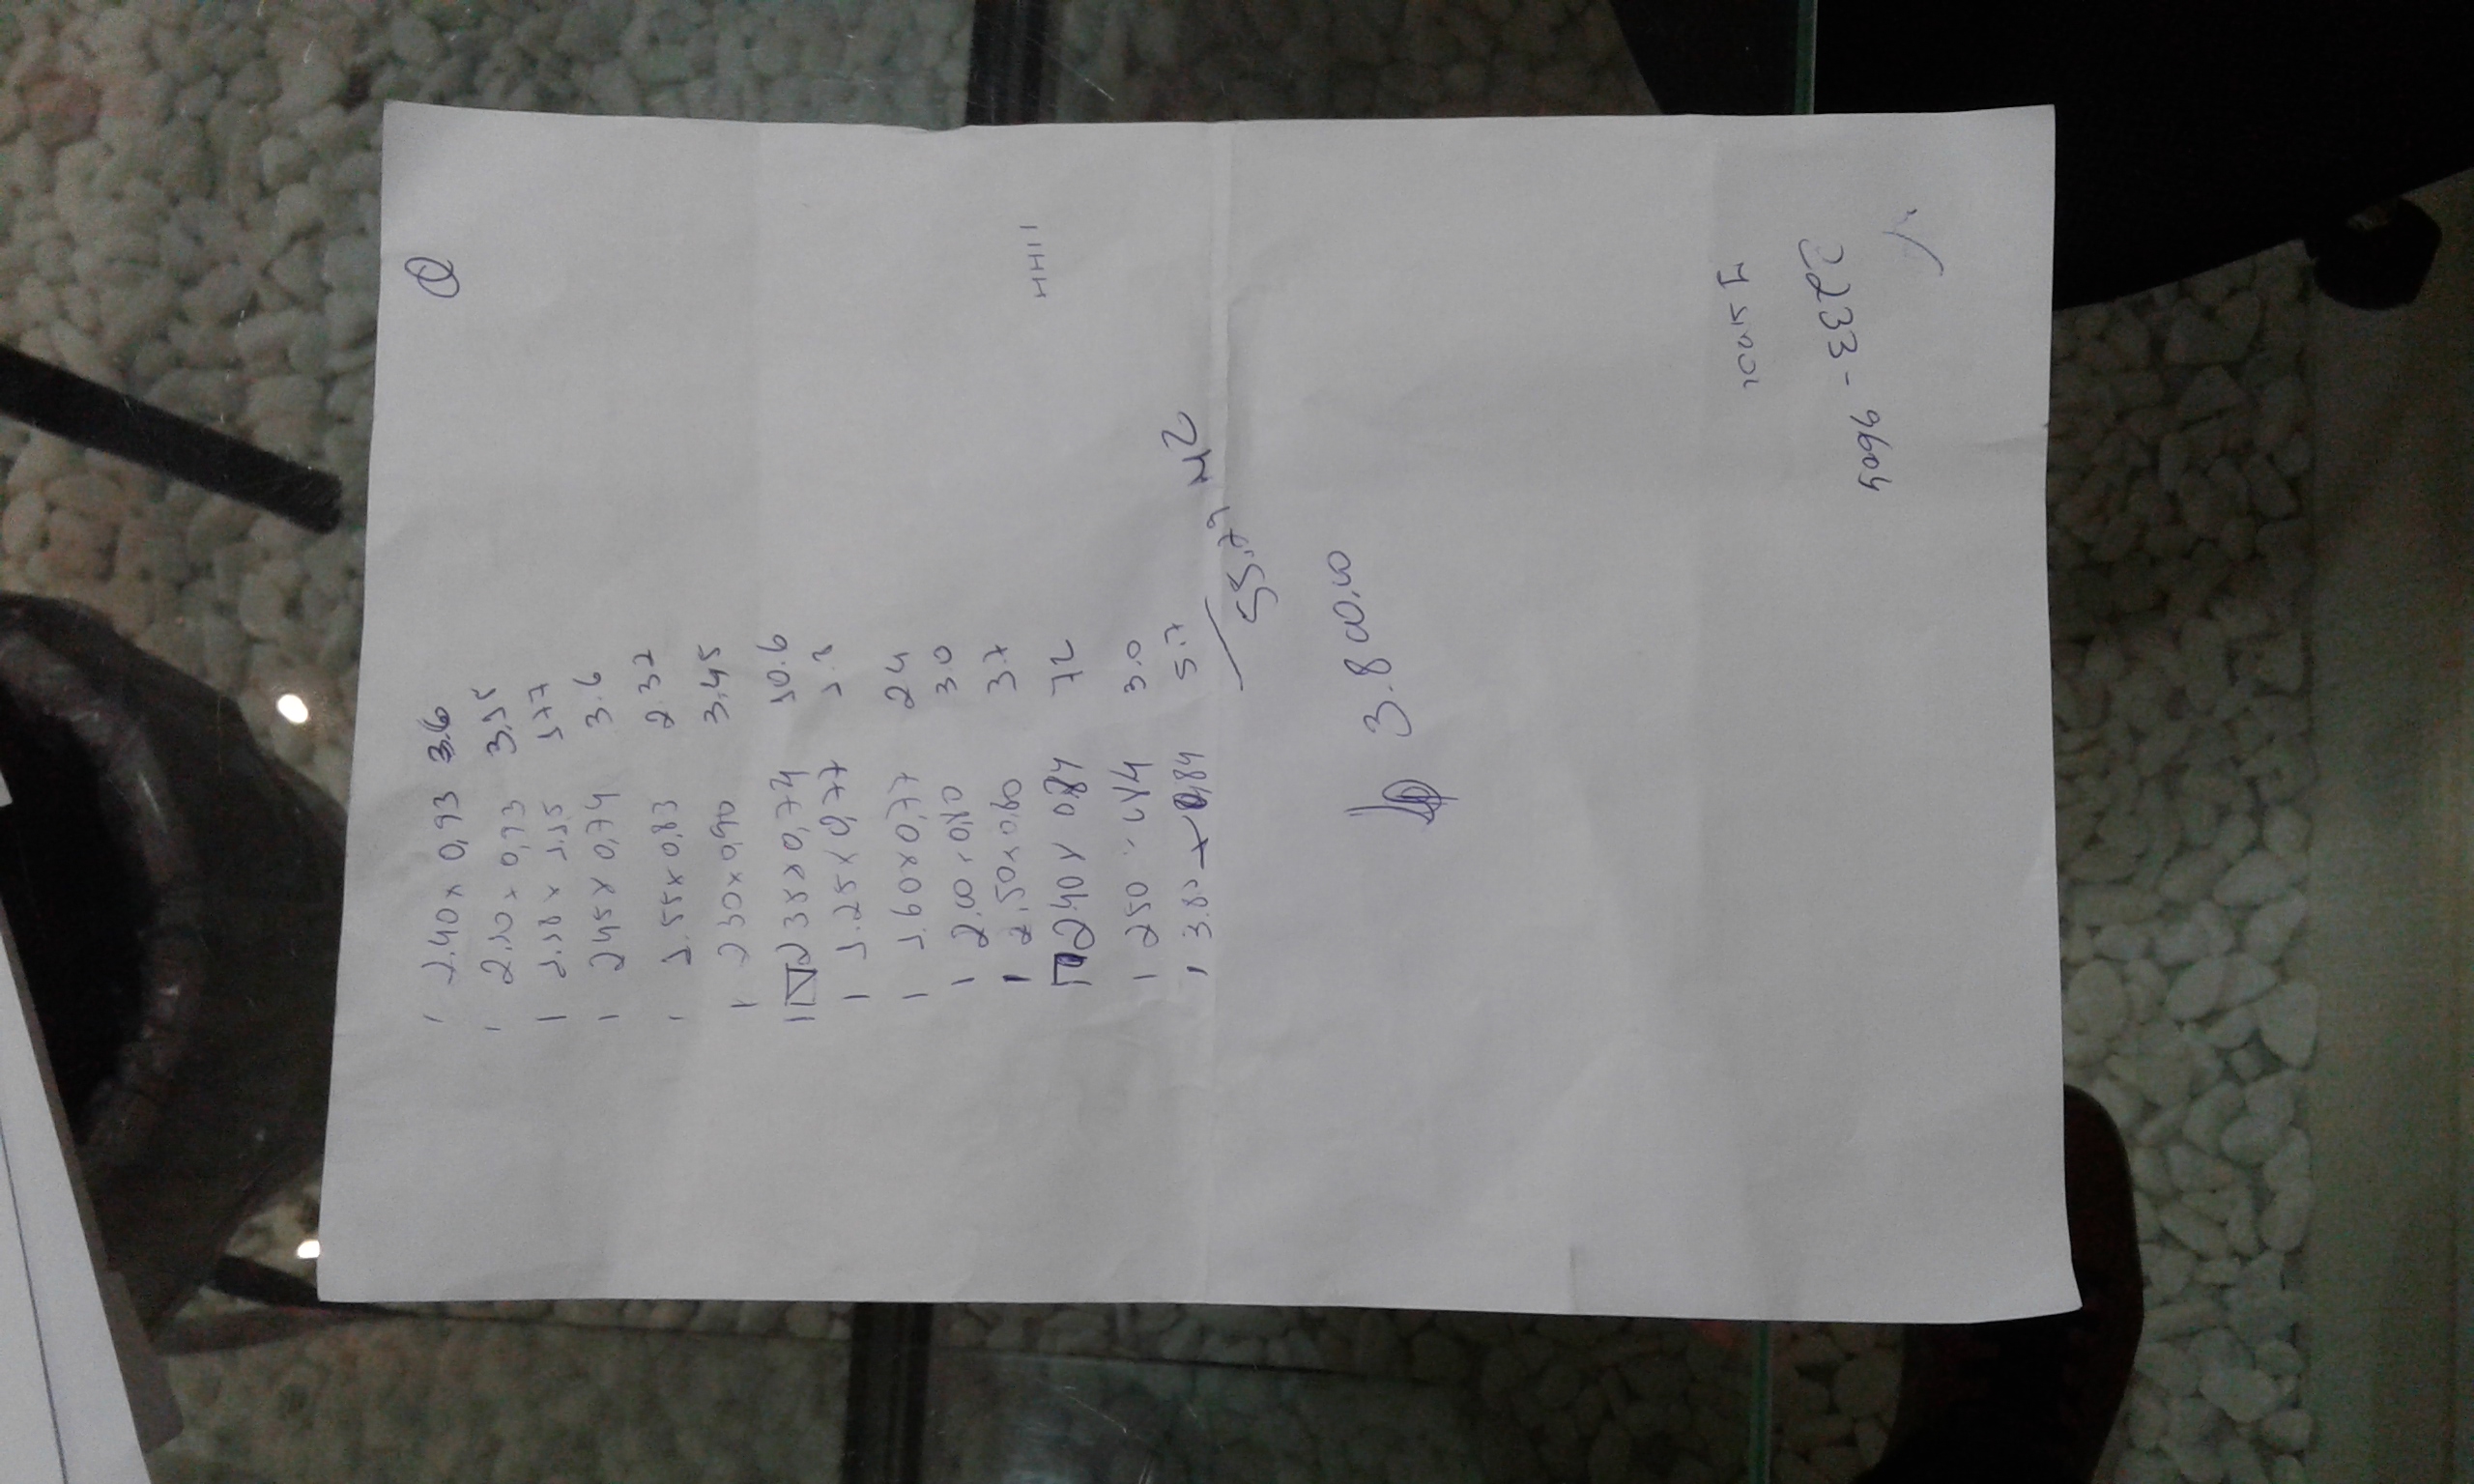 2.40 x 0,93 3.6
2.10 x 0,93 3,15
1.18 x 1.15 1.77
1 245 x 0,74 3.6
1.55 x 0,83 2.32
1 230 x 0,90 3.45
235 x 0,74 10.6
1 1.25 x 0,77
1 1.60 x 0,77 24
1 2.00 x 0,80 3.0
1 2.50 x 0,80 3.7
240 x 084 72
1 250 3.0
0,84 5.7
55.79 M2
3.800,00
2233-9604